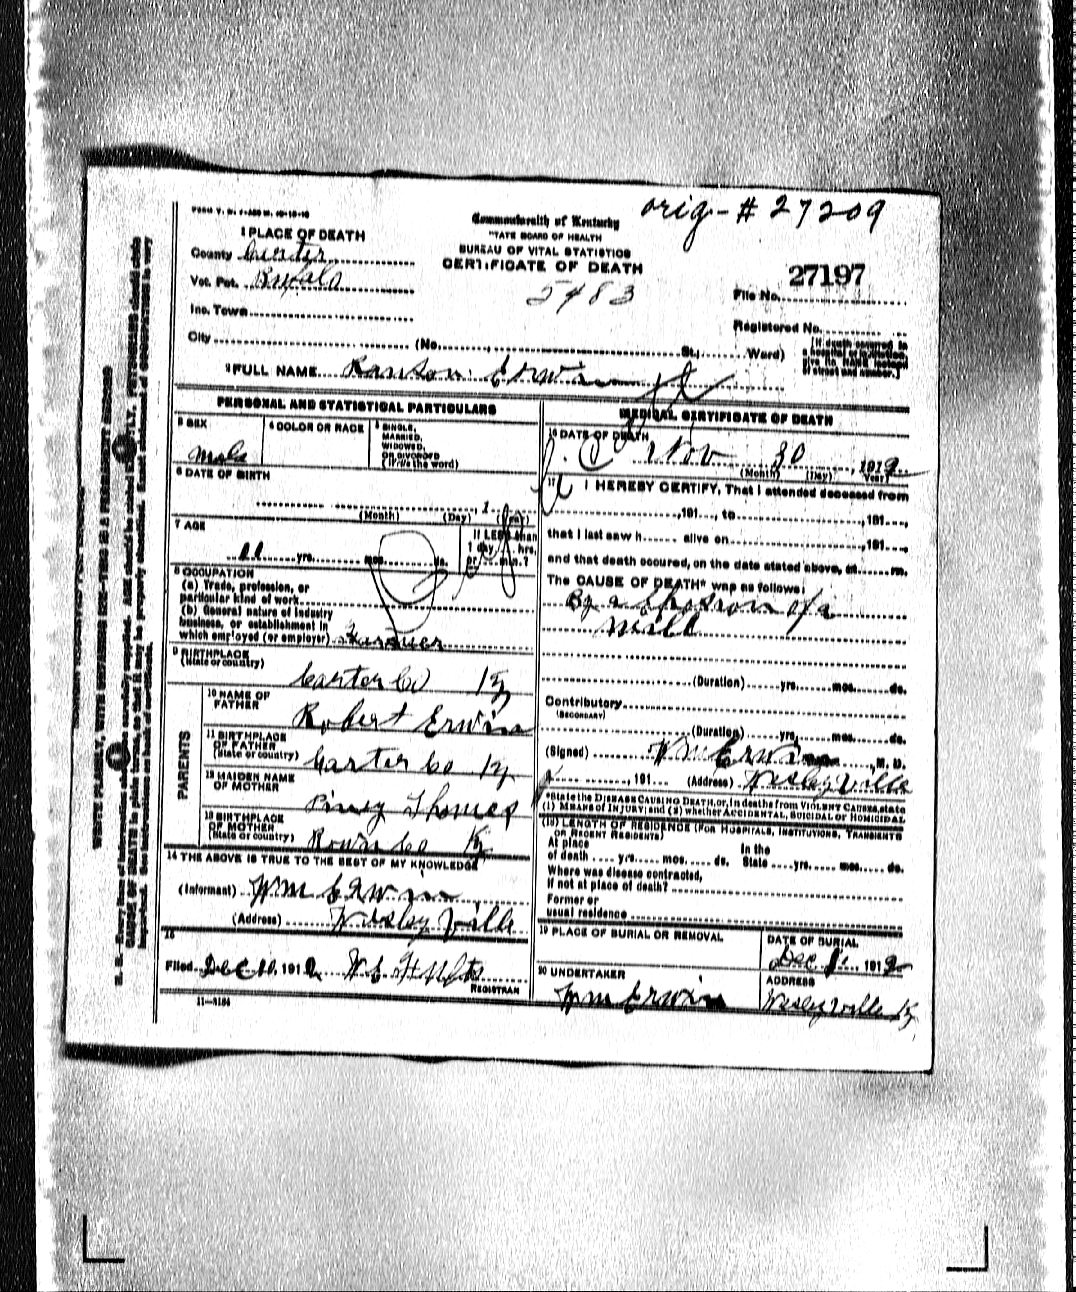 orig-# 27209
FORM V. S. 1-
1 PLACE OF DEATH
Commonwealth of Kentucky
STATE BOARD OF HEALTH
BUREAU OF VITAL STATISTICS
CERTIFICATE OF DEATH
County Carter
Vot. Pct. Bufalo
5483
27197
File No.
Inc. Town
Registered No.
City (No. St.; Ward)
[If death occurred in a hospital or institution, give its NAME instead of street and number.]
2 FULL NAME Ranson Erwin
PERSONAL AND STATISTICAL PARTICULARS
3 SEX
Male
4 COLOR OR RACE
5 SINGLE, MARRIED, WIDOWED, OR DIVORCED (Write the word)
6 DATE OF BIRTH
1
(Month) (Day) (Year)
7 AGE
11 yrs. mos. ds.
If LESS than 1 day hrs. or min.?
8 OCCUPATION
(a) Trade, profession, or
particular kind of work
(b) General nature of industry
business, or establishment in
which employed (or employer)
9 BIRTHPLACE
(State or country)
Carter Co Ky
PARENTS
10 NAME OF FATHER
Robert Erwin
11 BIRTHPLACE OF FATHER
(State or country) Carter Co Ky
12 MAIDEN NAME OF MOTHER
Thomas
13 BIRTHPLACE OF MOTHER
(State or country) Rowan Co Ky
14 THE ABOVE IS TRUE TO THE BEST OF MY KNOWLEDGE
(Informant) Wm Erwin
(Address) Wesleyville
15
Filed Dec 10, 1912
REGISTRAR
11-3184
MEDICAL CERTIFICATE OF DEATH
16 DATE OF DEATH
Nov 30, 1912
(Month) (Day) (Year)
17 I HEREBY CERTIFY, That I attended deceased from
, 191 , to , 191 ,
that I last saw h alive on , 191 ,
and that death occured, on the date stated above, at m.
The CAUSE OF DEATH* was as follows:
By a Explosion of a
Mill
(Duration) yrs. mos. ds.
Contributory
(SECONDARY)
(Duration) yrs. mos. ds.
(Signed) Wm Erwin, M. D.
, 191 (Address) Wesleyville
*State the DISEASE CAUSING DEATH, or, in deaths from VIOLENT CAUSES, state
(1) MEANS OF INJURY; and (2) whether ACCIDENTAL, SUICIDAL or HOMICIDAL
(18) LENGTH OF RESIDENCE (FOR HOSPITALS, INSTITUTIONS, TRANSIENTS
OR RECENT RESIDENTS)
At place of death yrs. mos. ds. In the State yrs. mos. ds.
Where was disease contracted,
if not at place of death?
Former or
usual residence
19 PLACE OF BURIAL OR REMOVAL
DATE OF BURIAL
Dec 1, 1912
20 UNDERTAKER
Wm Erwin
ADDRESS
Wesleyville Ky